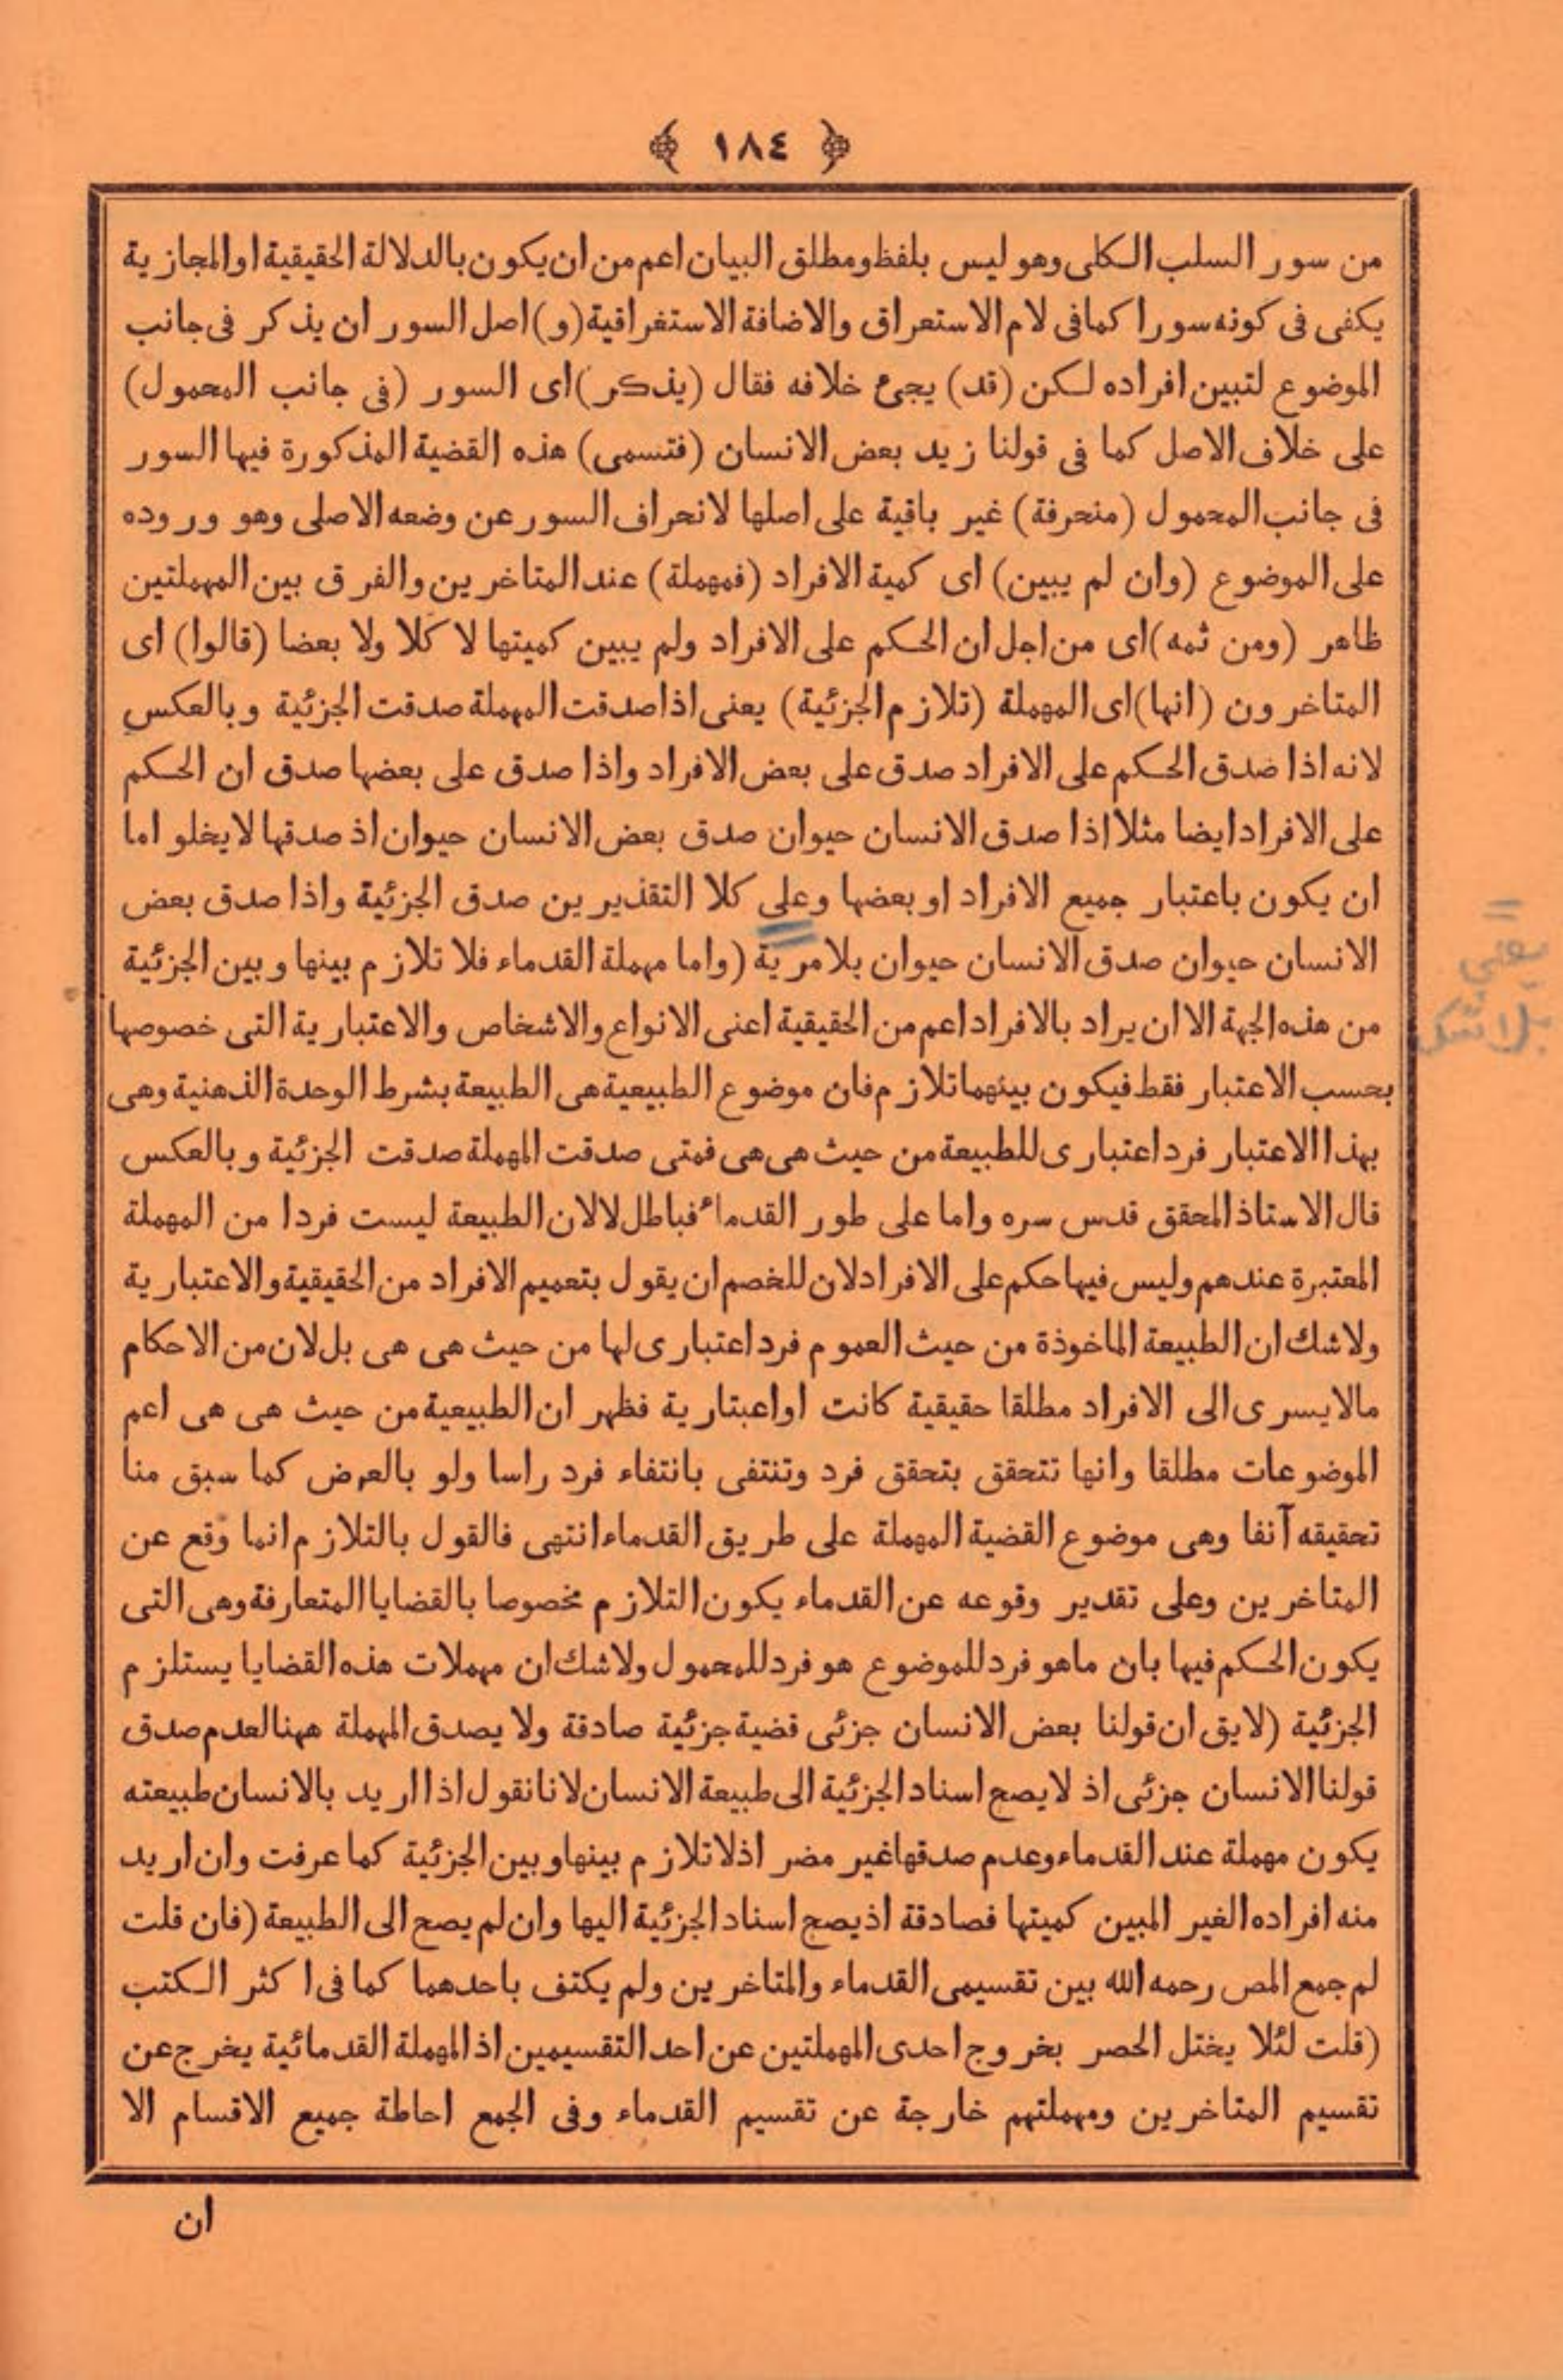 ﴿ ١٨٤ ﴾
من سور السلب الكلى وهو ليس بلفظ ومطلق البيان اعم من ان يكون بالدلالة الحقيقية او المجازية
يكفى فى كونه سورا كما فى لام الاستعراق والاضافة الاستغراقية (و) اصل السور ان يذكر فى جانب
الموضوع لتبين افراده لكن (قد) يجئ خلافه فقال (يذكر) اى السور (فى جانب المحمول)
على خلاف الاصل كما فى قولنا زيد بعض الانسان (فتسمى) هذه القضية المذكورة فيها السور
فى جانب المحمول (منحرفة) غير باقية على اصلها لانحراف السور عن وضعه الاصلى وهو وروده
على الموضوع (وان لم يبين) اى كمية الافراد (فمهملة) عند المتاخرين والفرق بين المهملتين
ظاهر (ومن ثمه) اى من اجل ان الحكم على الافراد ولم يبين كميتها لا كلا ولا بعضا (قالوا) اى
المتاخرون (انها) اى المهملة (تلازم الجزئية) يعنى اذا صدقت المهملة صدقت الجزئية وبالعكس
لانه اذا صدق الحكم على الافراد صدق على بعض الافراد واذا صدق على بعضها صدق ان الحكم
على الافراد ايضا مثلا اذا صدق الانسان حيوان صدق بعض الانسان حيوان اذ صدقها لا يخلو اما
ان يكون باعتبار جميع الافراد او بعضها وعلى كلا التقذيرين صدق الجزئية واذا صدق بعض
الانسان حيوان صدق الانسان حيوان بلا مرية (واما مهملة القدماء فلا تلازم بينها وبين الجزئية
من هذه الجهة الا ان يراد بالافراد اعم من الحقيقية اعنى الانواع والاشخاص والاعتبارية التى خصوصها
بحسب الاعتبار فقط فيكون بينهما تلازم فان موضوع الطبيعية هى الطبيعة بشرط الوحدة الذهنية وهى
بهذا الاعتبار فرد اعتبارى للطبيعة من حيث هى هى فمتى صدقت المهملة صدقت الجزئية وبالعكس
قال الاستاذ المحقق قدس سره واما على طور القدماء فباطل لا لان الطبيعة ليست فردا من المهملة
المعتبرة عندهم وليس فيها حكم على الافراد لان للخصم ان يقول بتعميم الافراد من الحقيقية والاعتبارية
ولا شك ان الطبيعة الماخوذة من حيث العموم فرد اعتبارى لها من حيث هى هى بل لان من الاحكام
مالا يسرى الى الافراد مطلقا حقيقية كانت او اعبتارية فظهر ان الطبيعية من حيث هى هى اعم
الموضوعات مطلقا وانها تتحقق بتحقق فرد وتنتفى بانتفاء فرد راسا ولو بالعرض كما سبق منا
تحقيقه آنفا وهى موضوع القضية المهملة على طريق القدماء انتهى فالقول بالتلازم انما وقع عن
المتاخرين وعلى تقدير وقوعه عن القدماء يكون التلازم مخصوصا بالقضايا المتعارفة وهى التى
يكون الحكم فيها بان ما هو فرد للموضوع هو فرد للمحمول ولا شك ان مهملات هذه القضايا يستلزم
الجزئية (لايق ان قولنا بعض الانسان جزئى قضية جزئية صادقة ولا يصدق المهملة ههنا لعدم صدق
قولنا الانسان جزئى اذ لا يصح اسناد الجزئية الى طبيعة الانسان لانا نقول اذا اريد بالانسان طبيعته
يكون مهملة عند القدماء وعدم صدقها غير مضر اذ لا تلازم بينها وبين الجزئية كما عرفت وان اريد
منه افراده الغير المبين كميتها فصادقة اذ يصح اسناد الجزئية اليها وان لم يصح الى الطبيعة (فان قلت
لم جمع المص رحمه الله بين تقسيمى القدماء والمتاخرين ولم يكتف باحدهما كما فى اكثر الكتب
(قلت لئلا يختل الحصر بخروج احدى المهملتين عن احد التقسيمين اذ المهملة القدمائية يخرج عن
تقسيم المتاخرين ومهملتهم خارجة عن تقسيم القدماء وفى الجمع احاطة جميع الاقسام الا
ان
يعنى
بلا شك